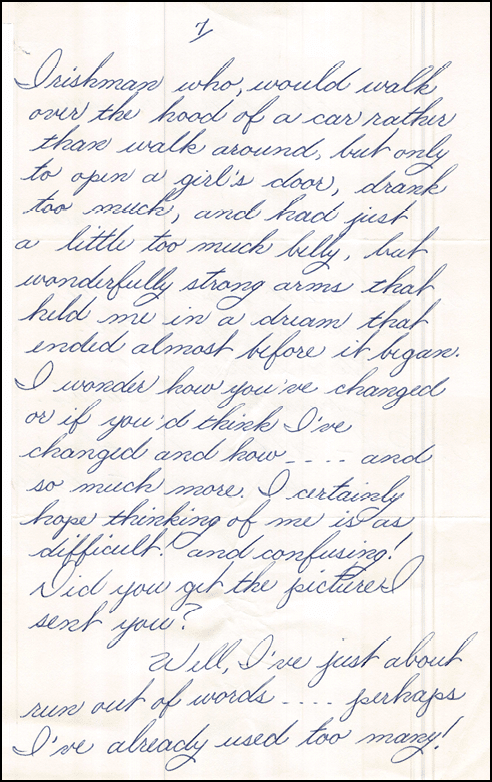 7/
Irishman who, would walk
over the hood of a car rather
than walk around, but only
to open a girl's door, drank
too much, and had just
a little too much belly, but
wonderfully strong arms that
held me in a dream that
ended almost before it began.
I wonder how you've changed
or if you'd think I've
changed and how.... and
so much more. I certainly
hope thinking of me is as
difficult! and confusing!
Did you get the picture I
sent you?
Well, I've just about
run out of words.... perhaps
I've already used too many!